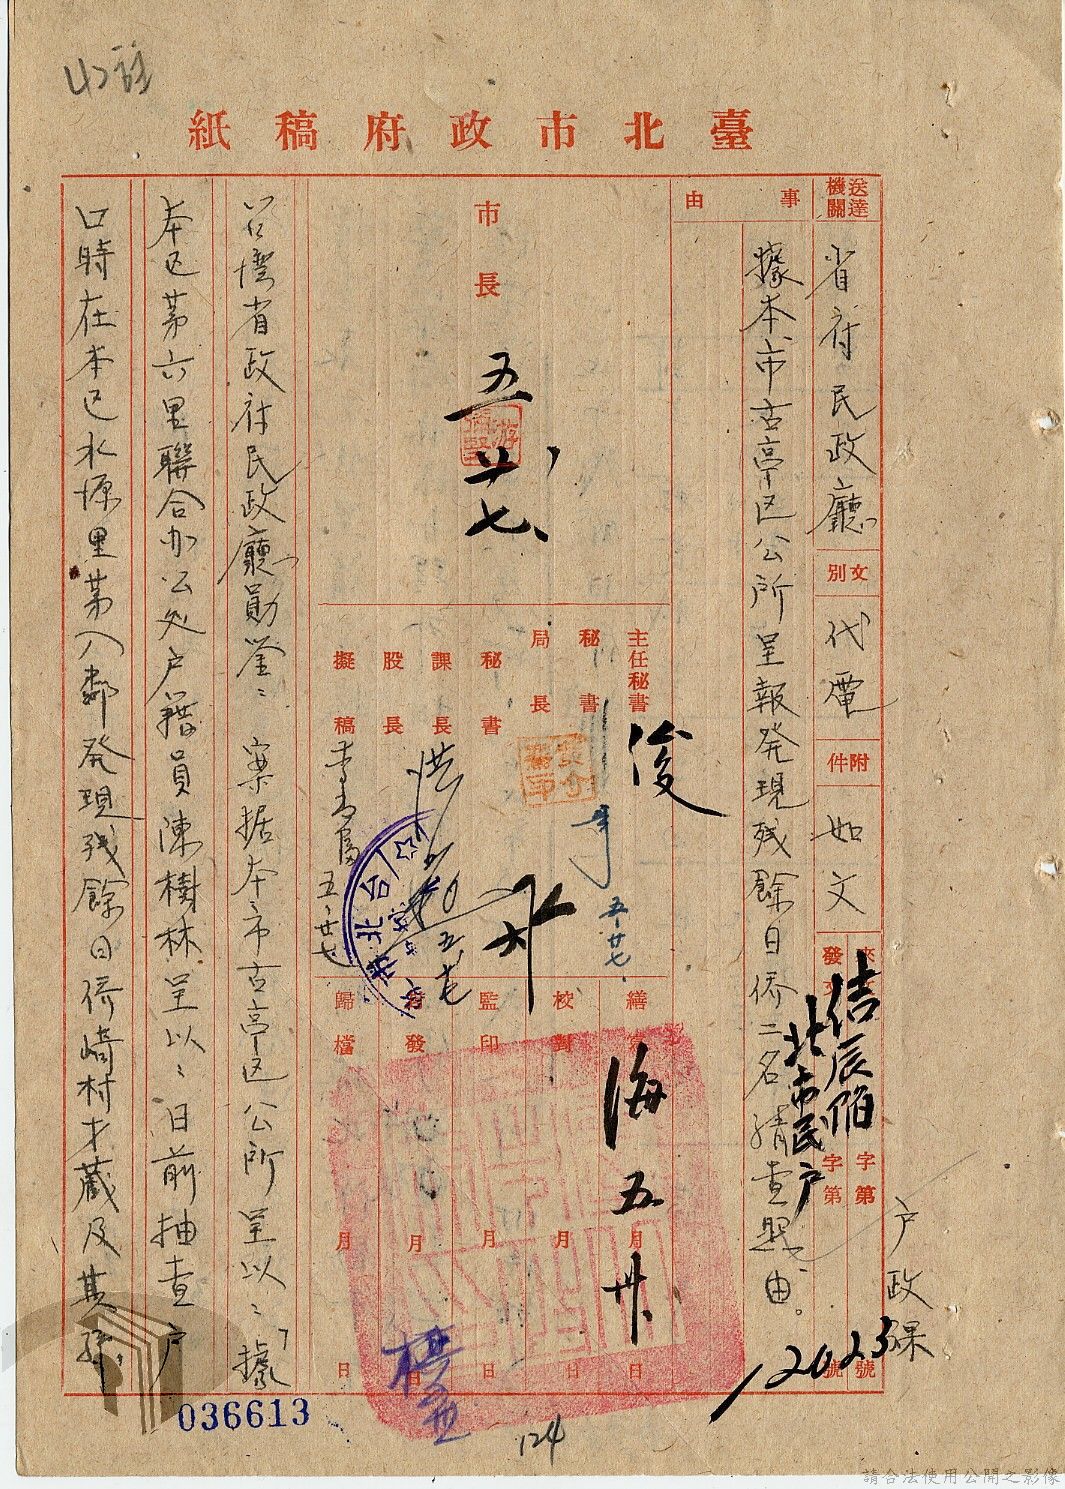 臺北市政府稿紙
送達機關
省府民政廳
文別
代電
附件
如文
事由
據本市古亭区公所呈報発現残餘日僑二名請查照由。
佳辰陌
北市民戶
字第
字第
12023
號
號
户政課
市長
五
廿七
主任秘書
俊
秘書
五·廿七.
局長
秘書
課長
洪
股長
擬稿
五·廿七
繕
海
五
月
卅
日
校對
月
日
監印
月
日
發
月
日
歸檔
月
日
台湾省政府民政廳勛鉴：案据本市古亭区公所呈以：「據
本区第六里聯合办公处户籍員陳樹林呈以：日前抽查户
口時在本区水源里第八鄰発現残餘日僑崎村才蔵及其
036613
124
請合法使用公開之影像